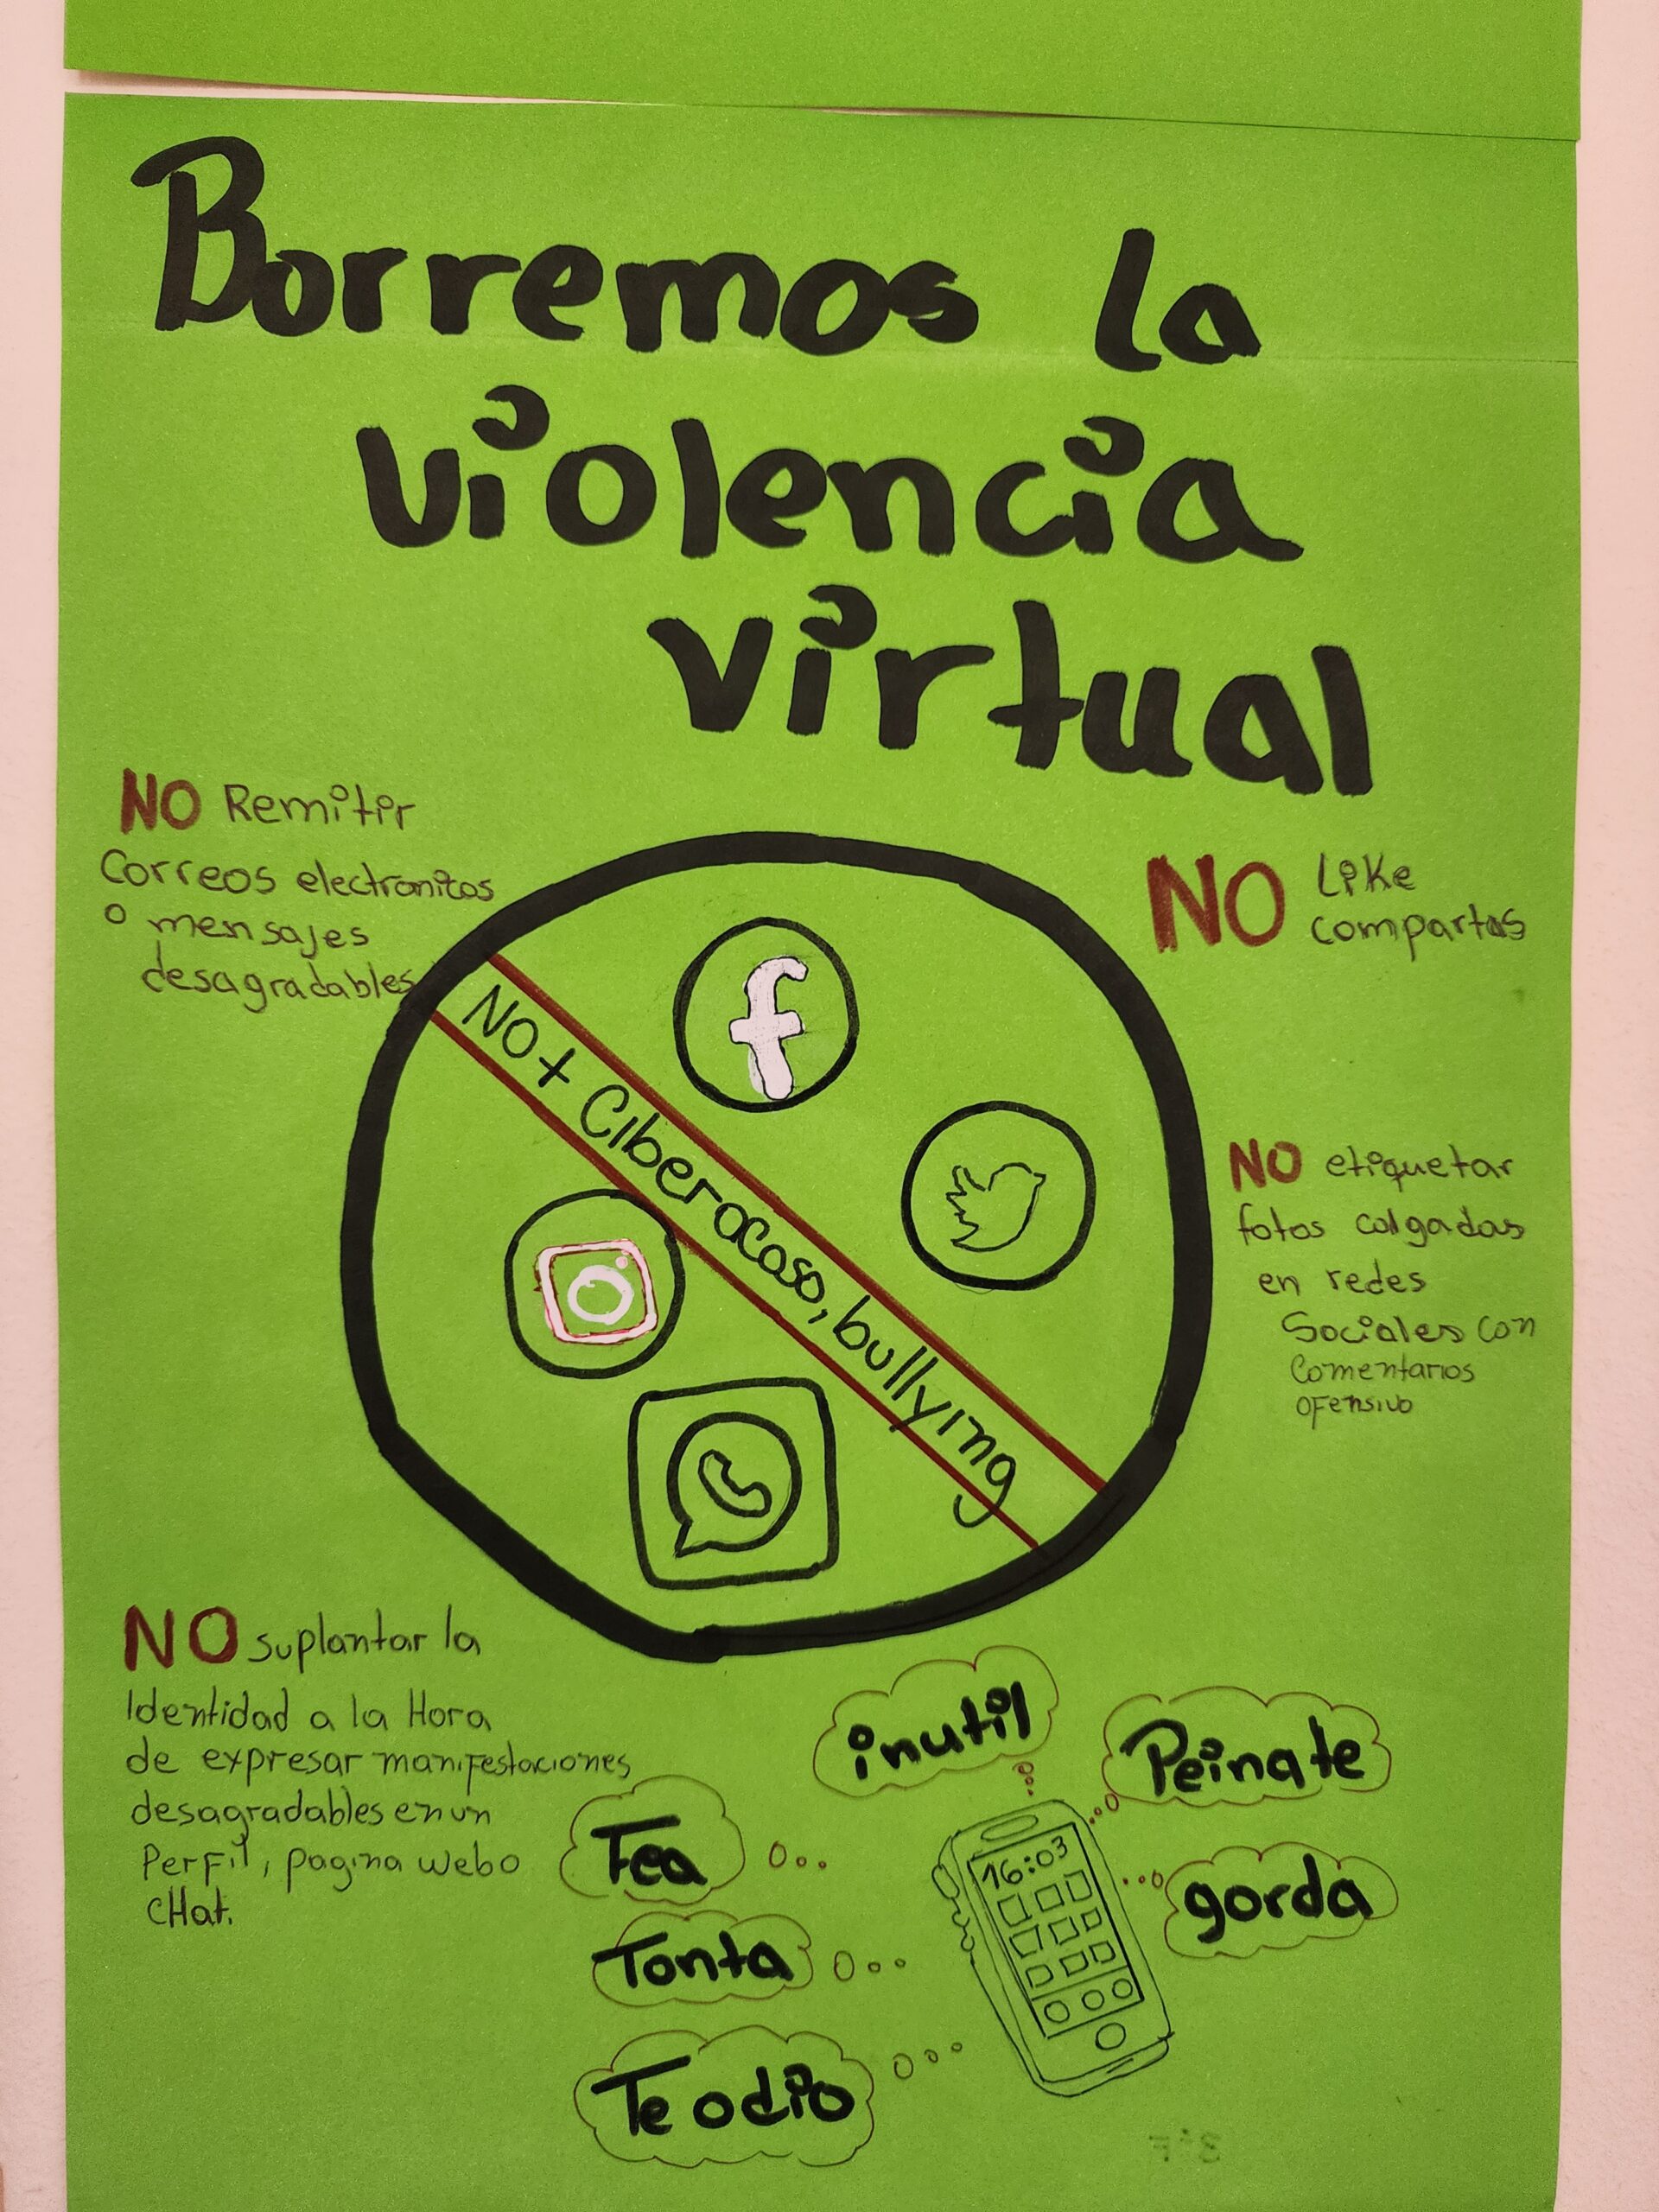 Borremos la
violencia
virtual
NO Remitir
Correos electronicos
o mensajes
desagradables
NO Like
compartas
NO+ Ciberacoso, bullying
NO etiquetar
fotos colgadas
en redes
Sociales con
Comentarios
ofensivo
NO suplantar la
Identidad a la Hora
de expresar manifestaciones
desagradables en un
Perfil, pagina web o
CHat.
inutil
Peinate
Fea
16:03
gorda
Tonta
Te odio